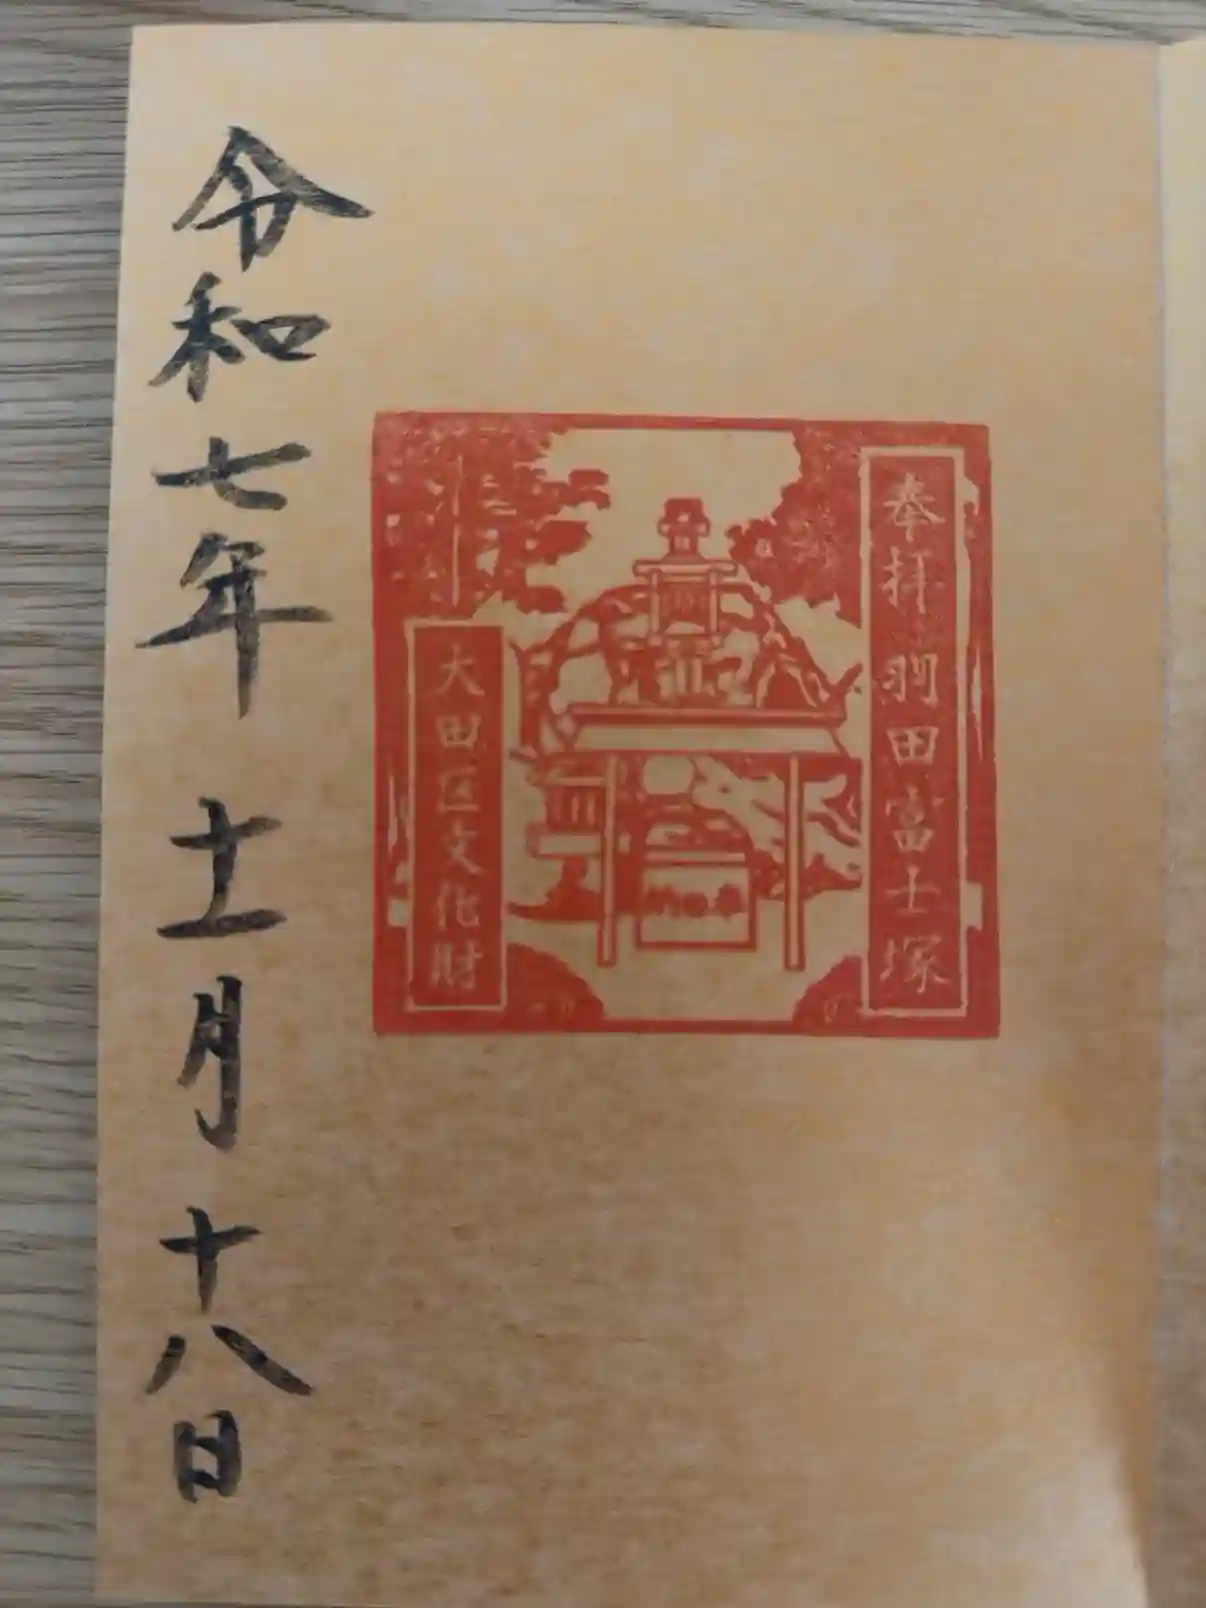 奉拝羽田富士塚
大田区文化財
令和七年十一月十八日